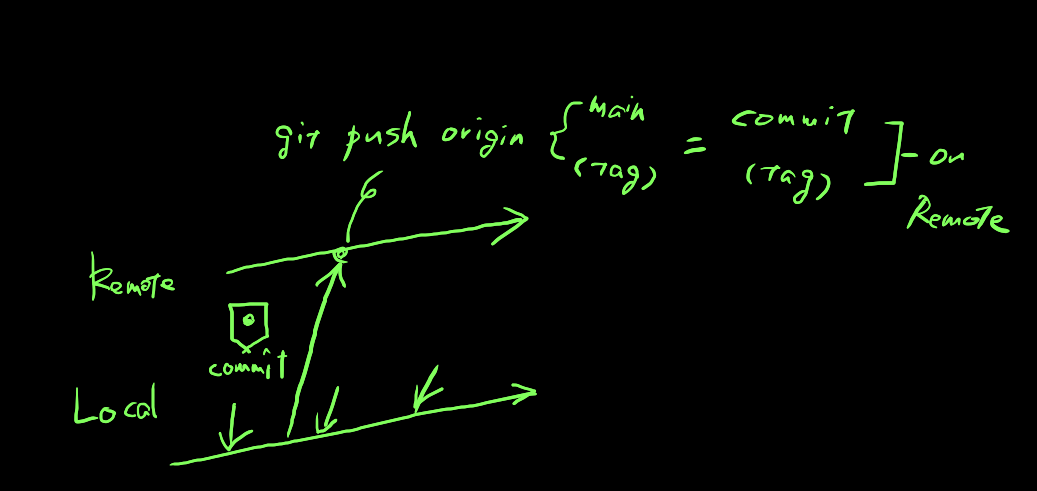 git push origin { main = commit ] - on
(Tag) (Tag) Remote
Remote
commit
Local